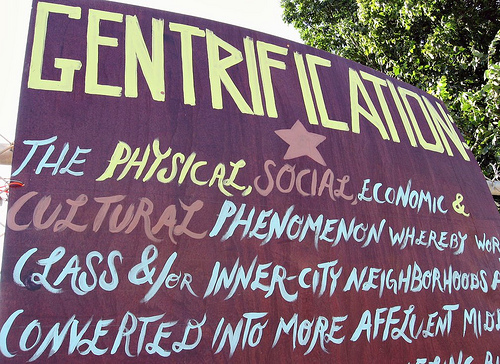 GENTRIFICATION
THE PHYSICAL, SOCIAL, ECONOMIC &
CULTURAL PHENOMENON WHEREBY WOR
CLASS &/OR INNER-CITY NEIGHBORHOODS A
CONVERTED INTO MORE AFFLUENT MIDD